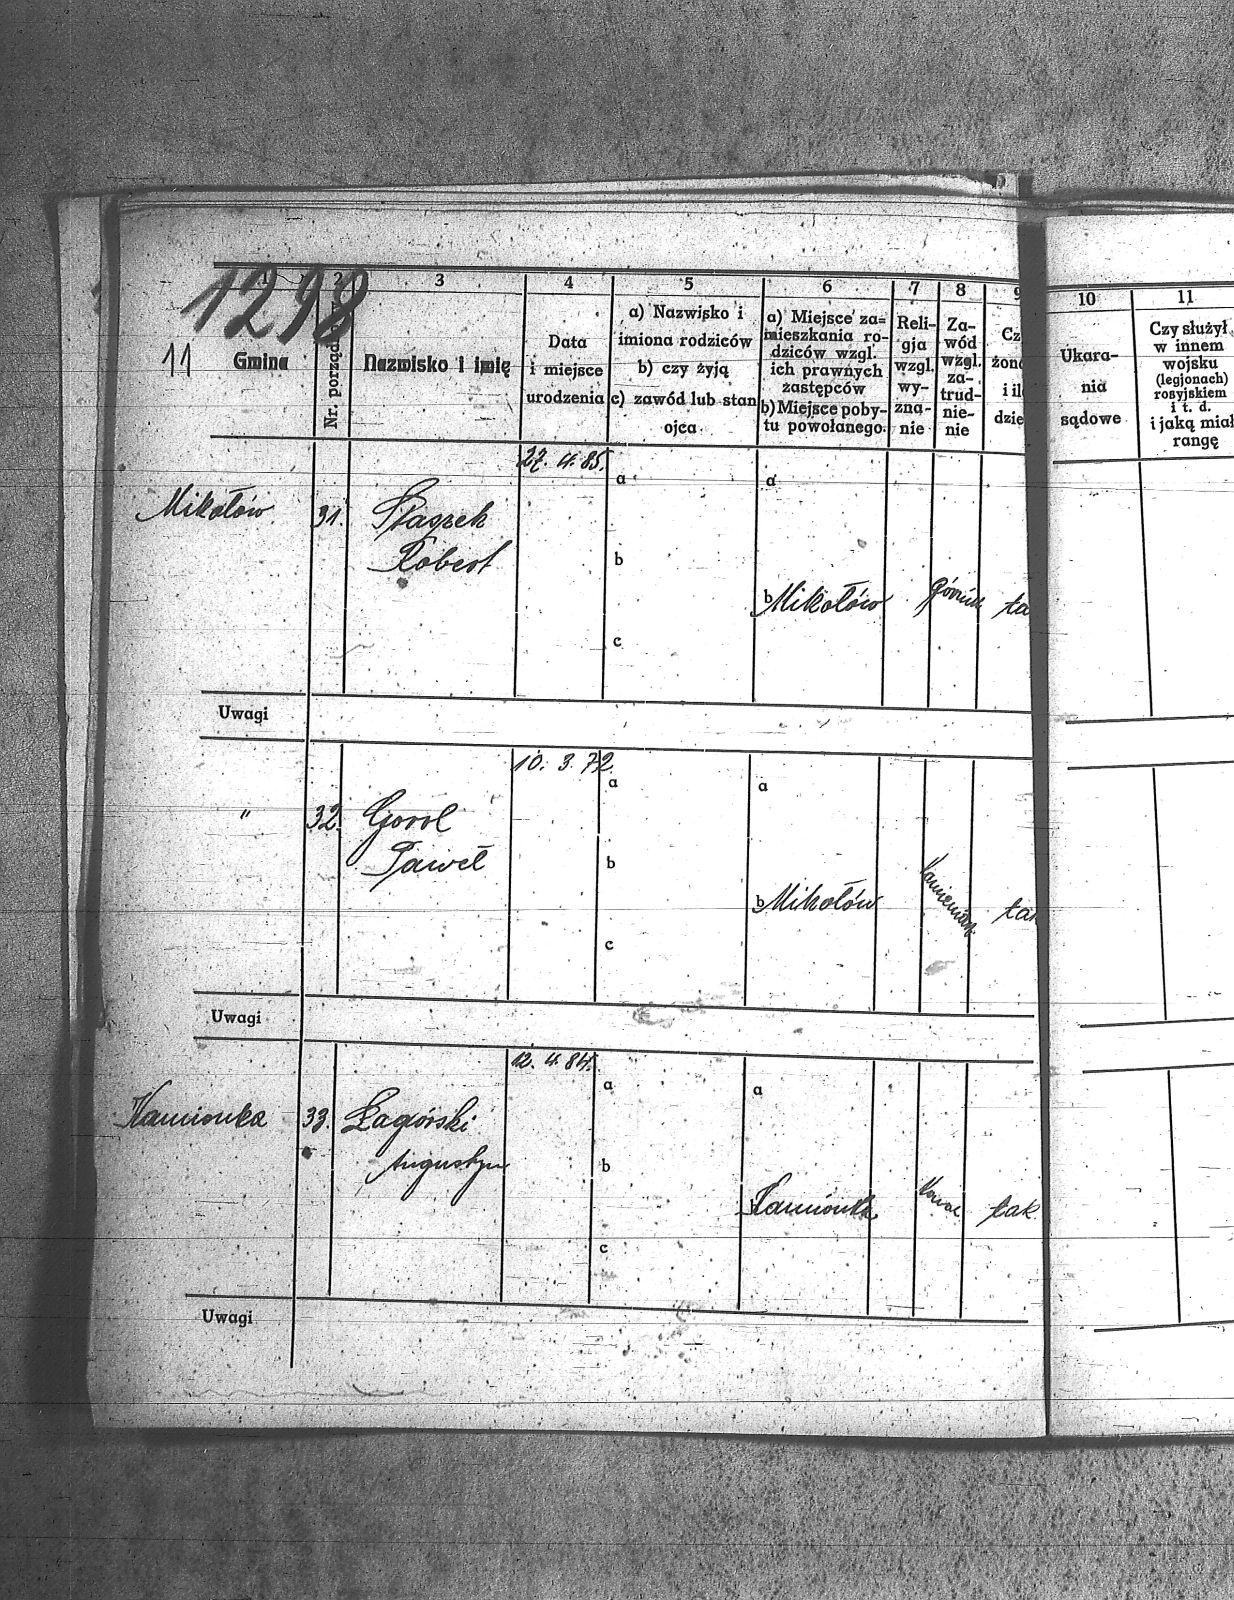 1298
11
1
Gmina
2
Nr. porząd
3
Nazwisko i imię
4
Data
i miejsce
urodzenia
5
a) Nazwisko i
imiona rodziców
b) czy żyją
c) zawód lub stan
ojca
6
a) Miejsce za=
mieszkania ro-
dziców wzgl.
ich prawnych
zastępców
b) Miejsce poby-
tu powołanego.
7
Reli-
gja
wzgl.
wy-
zna-
nie
8
Za-
wód
wzgl.
za-
trud-
nie-
nie
9
Cz
żona
i il
dzie
10
Ukara-
nia
sądowe
11
Czy służył
w innem
wojsku
(legjonach)
rosyjskiem
i t. d.
i jaką miał
rangę
Mikołów
31.
Robert
27. 4. 85.
a
b
c
a
b Mikołów
ta
Uwagi
"
32.
Gorol
Paweł
10. 3. 72.
a
b
c
a
b Mikołów
tak
Uwagi
Kamionka
33.
Zagórski
Augustyn
12. 4. 84.
a
b
c
a
Kamionka
tak
Uwagi